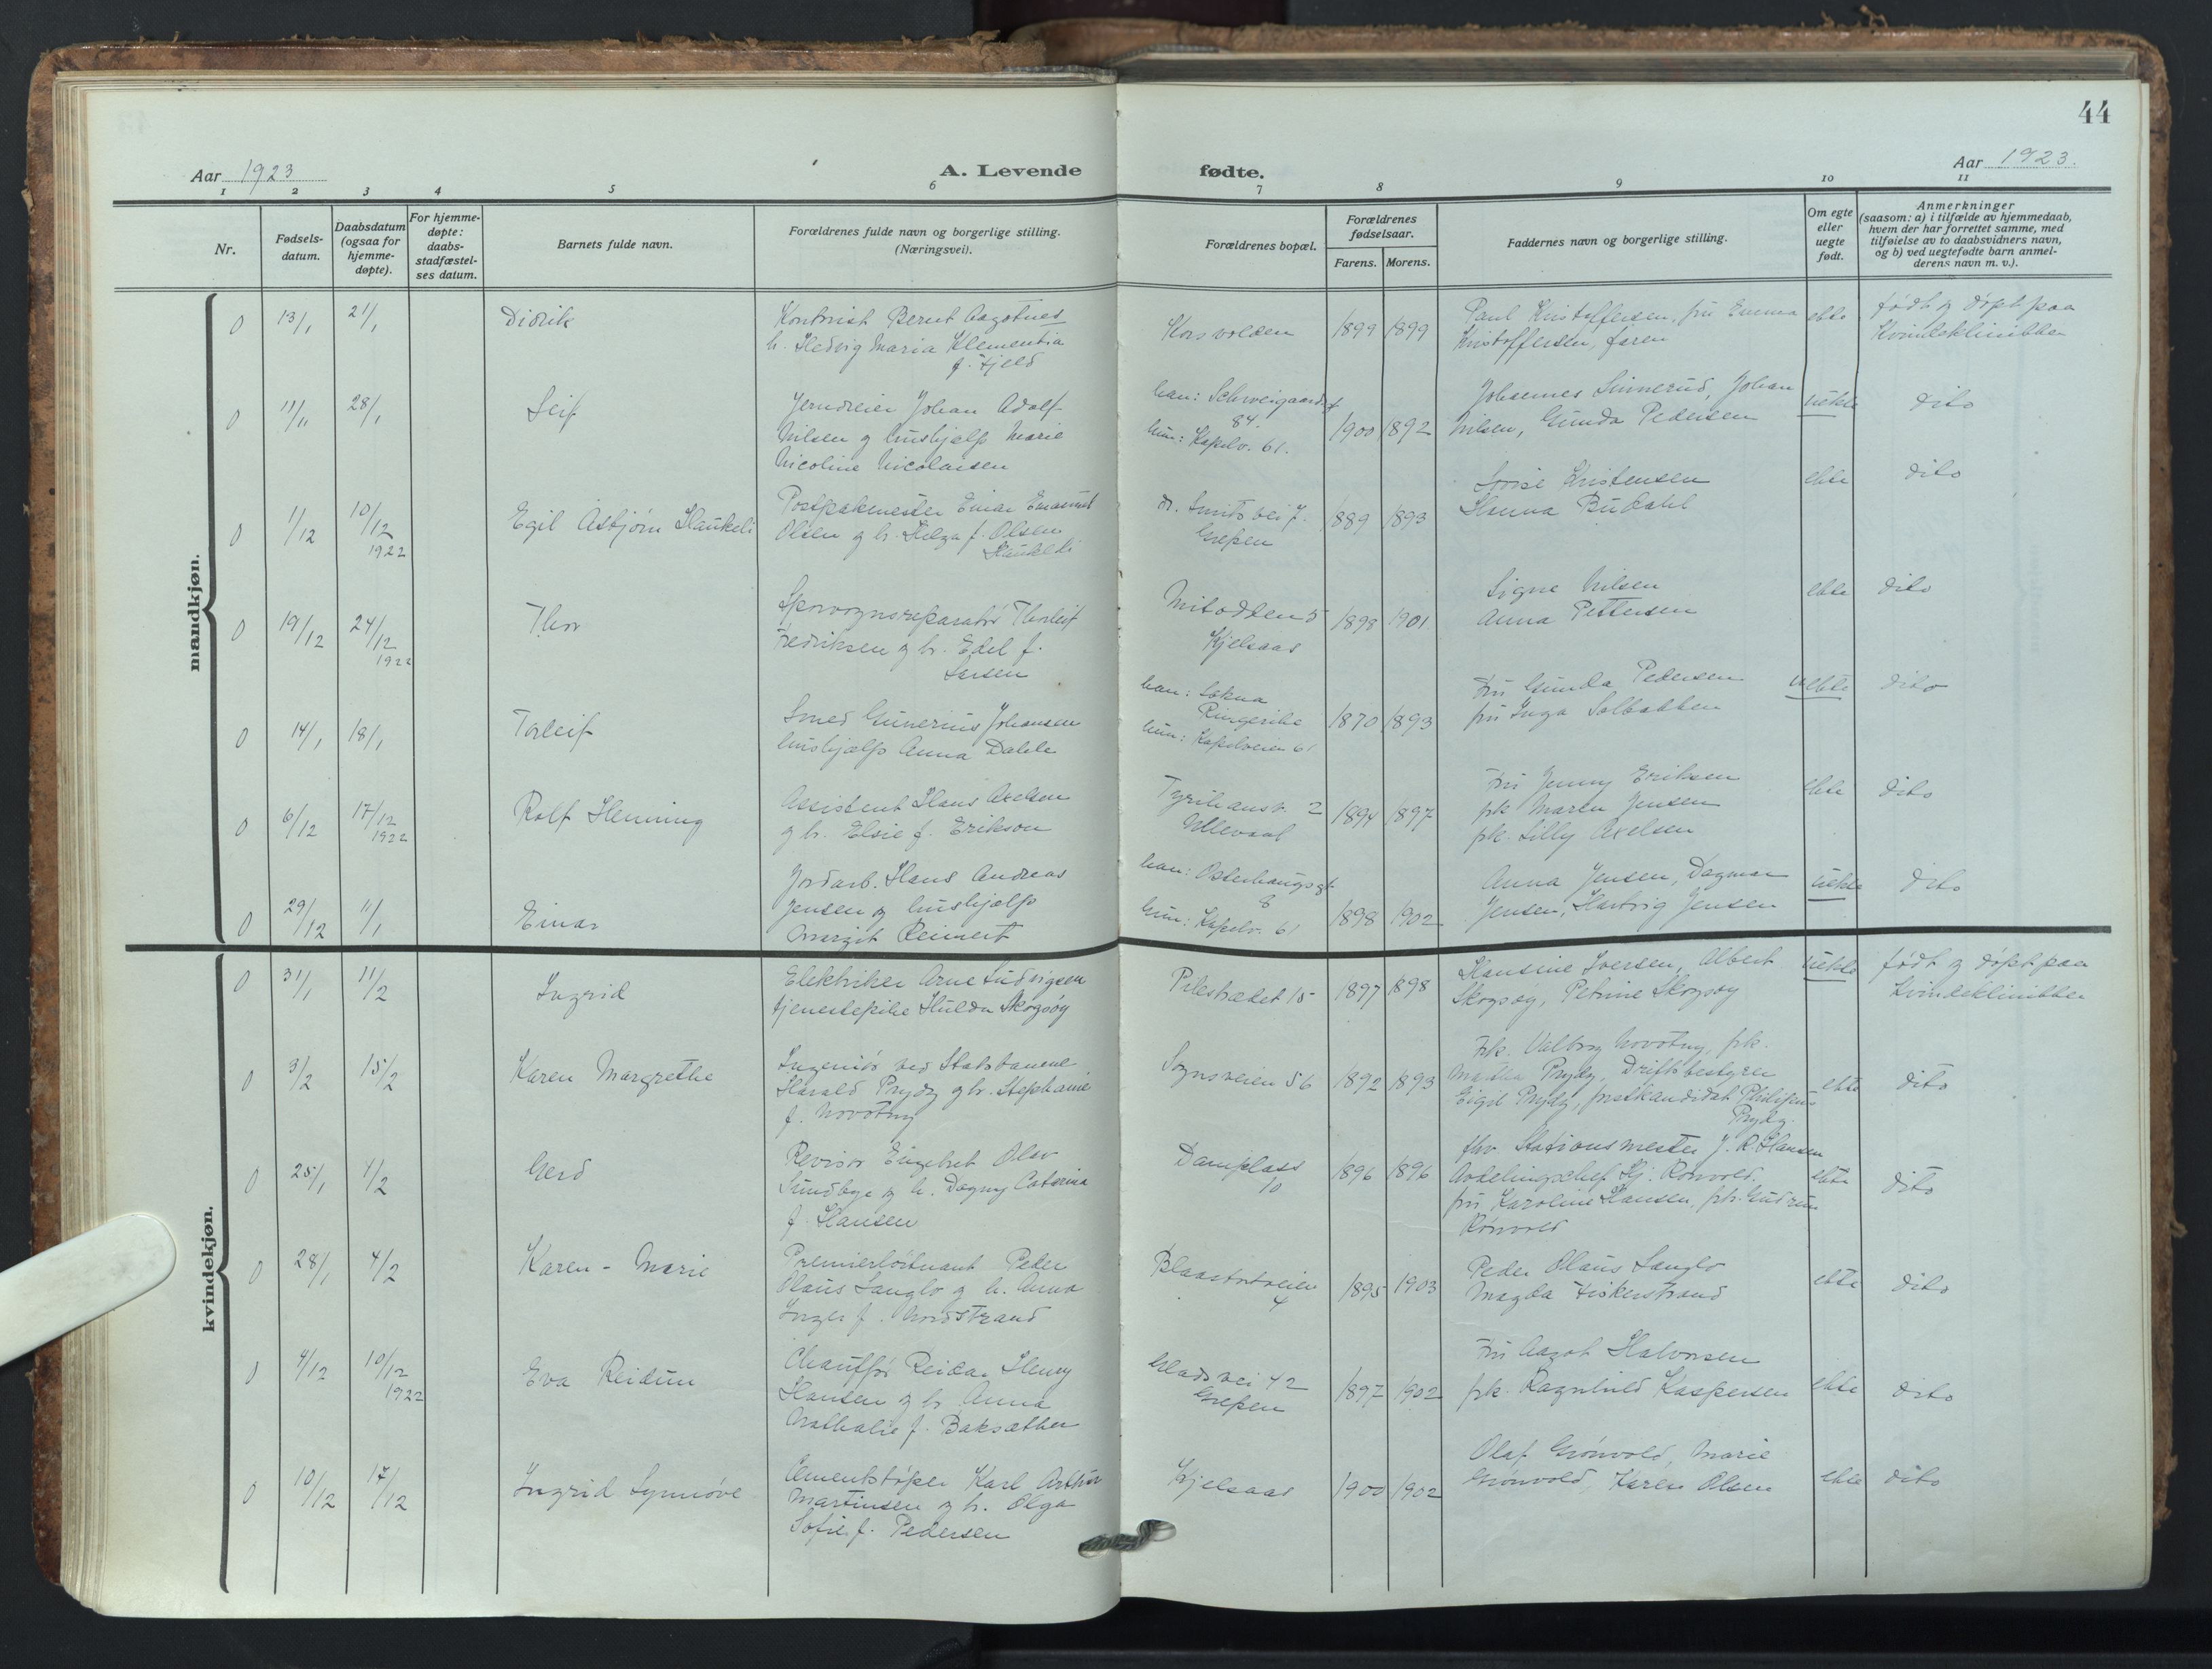 44
Aar 1923
A. Levende
fødte.
Aar 1923.
1 2 3 4 5 6 7 8 9 10 11
Nr.
Fødsels-
datum.
Daabsdatum
(ogsaa for
hjemme-
døpte).
For hjemme-
døpte:
daabs-
stadfæstel-
ses datum.
Barnets fulde navn.
Forældrenes fulde navn og borgerlige stilling.
(Næringsvei).
Forældrenes bopæl.
Forældrenes
fødselsaar.
Farens. Morens.
Faddernes navn og borgerlige stilling.
Om egte
eller
uegte
født.
Anmerkninger
(saasom: a) i tilfælde av hjemmedaab,
hvem der har forrettet samme, med
tilføielse av to daabsvidners navn,
og b) ved uegtefødte barn anmel-
derens navn m. v.).
mandkjøn.
0 13/1 21/1
Didrik
Kontorist Bernt Aagotnes
h. Hedvig Maria Klementia
f. Fjeld
Korsvolden
1899 1899
Paul Kristoffersen, fru Emma
Kristoffersen, faren
ekte
født og døpt paa
Kvindeklinikken
0 11/1 28/1
Leif
Jerndreier Johan Adolf
Nilsen og hushjelp Marie
Nicoline Nicolaisen
han: Schweigaardsgt
84.
hun: Kapelv. 61.
1900 1892
Johannes Linnerud, Johan
Nilsen, Gunda Pedersen
uekte
dito
0 1/12 10/12
1922
Egil Asbjørn Haukeli
Postpakmester Einar Emanuel
Olsen og h. Helga f. Olsen
Haukeli
dr. Smits vei 7.
Grefsen
1889 1893
Lovise Kristensen
Hanna Budahl
ekte
dito
0 19/12 24/12
1922
Thor
Sporvognsreparatør Thorleif
Fredriksen og h. Edel f.
Larsen
Midtodden 5
Kjelsaas
1898 1901
Signe Nilsen
Anna Pettersen
ekte
dito
0 14/1 18/1
Torleif
Smed Gunerius Johansen
hushjelp Anna Dahle
han: Sokna
Ringerike
hun: Kapelveien 61
1870 1893
Fru Gunda Pedersen
fru Inga Solbakken
uekte
dito
0 6/12 17/12
1922
Rolf Henning
Assistent Hans Axelsen
og h. Elsie f. Erikson
Tyrihansv. 2
Ullevaal
1894 1897
Fru Jenny Eriksen
frk Maren Jensen
frk. Lilly Axelsen
ekte
dito
0 29/12 11/1
Einar
Jordarb. Hans Andreas
Jensen og hushjelp
Margit Reinert
han: Osterhausgt
8
hun: Kapelv. 61
1898 1902
Anna Jensen, Dagmar
Jensen, Hartvig Jensen
uekte
dito
kvindekjøn.
0 31/1 11/2
Ingrid
Elektriker Arne Ludvigsen
tjenestepike Hulda Skogsøy
Pilestrædet 15
1897 1898
Hansine Iversen, Albert
Skogsøy, Petrine Skogsøy
uekte
født og døpt paa
kvindeklinikken
0 3/2 15/2
Karen Margrethe
Ingeniør ved Statsbanene
Harald Prydz og h. Stephanie
f. Novotny
Sognsveien 56
1892 1893
Frk. Valborg Novotny, frk.
Martha Prydz, Driftsbestyrer
Eigil Prydz, forstkandidat Philip
Prydz.
ekte
dito
0 25/1 4/2
Gerd
Revisor Engebret Olav
Sundbye og h. Dagny Caterina
f. Hansen
Damplass
10
1896 1896
fhv. Stationsmester J. R. Hansen
Avdelingschef Hj. Rønvold.
fru Karoline Hansen, frk. Gudrun
Rønvold
ekte
dito
0 28/1 4/2
Karen-Marie
Premierløitnant Peder
Olaus Langlo og h. Anna
Inger f. Nordstrand
Blaasbortveien
4
1895 1903
Peder Olaus Langlo
Magda Fiskerstrand
ekte
dito
0 4/12 10/12
1922
Eva Reidun
Chauffør Reidar Henry
Hansen og h. Anna
Nathalie f. Baksæther
Glads vei 42
Grefsen
1897 1902
Fru Aagot Halvorsen
frk. Ragnhild Kaspersen
ekte
dito
0 10/12 17/12
Ingrid Synnøve
Cementstøper Karl Arthur
Martinsen og h. Olga
Sofie f. Pedersen
Kjelsaas
1900 1902
Olaf Grønvold, Marie
Grønvold, Karen Olsen
ekte
dito